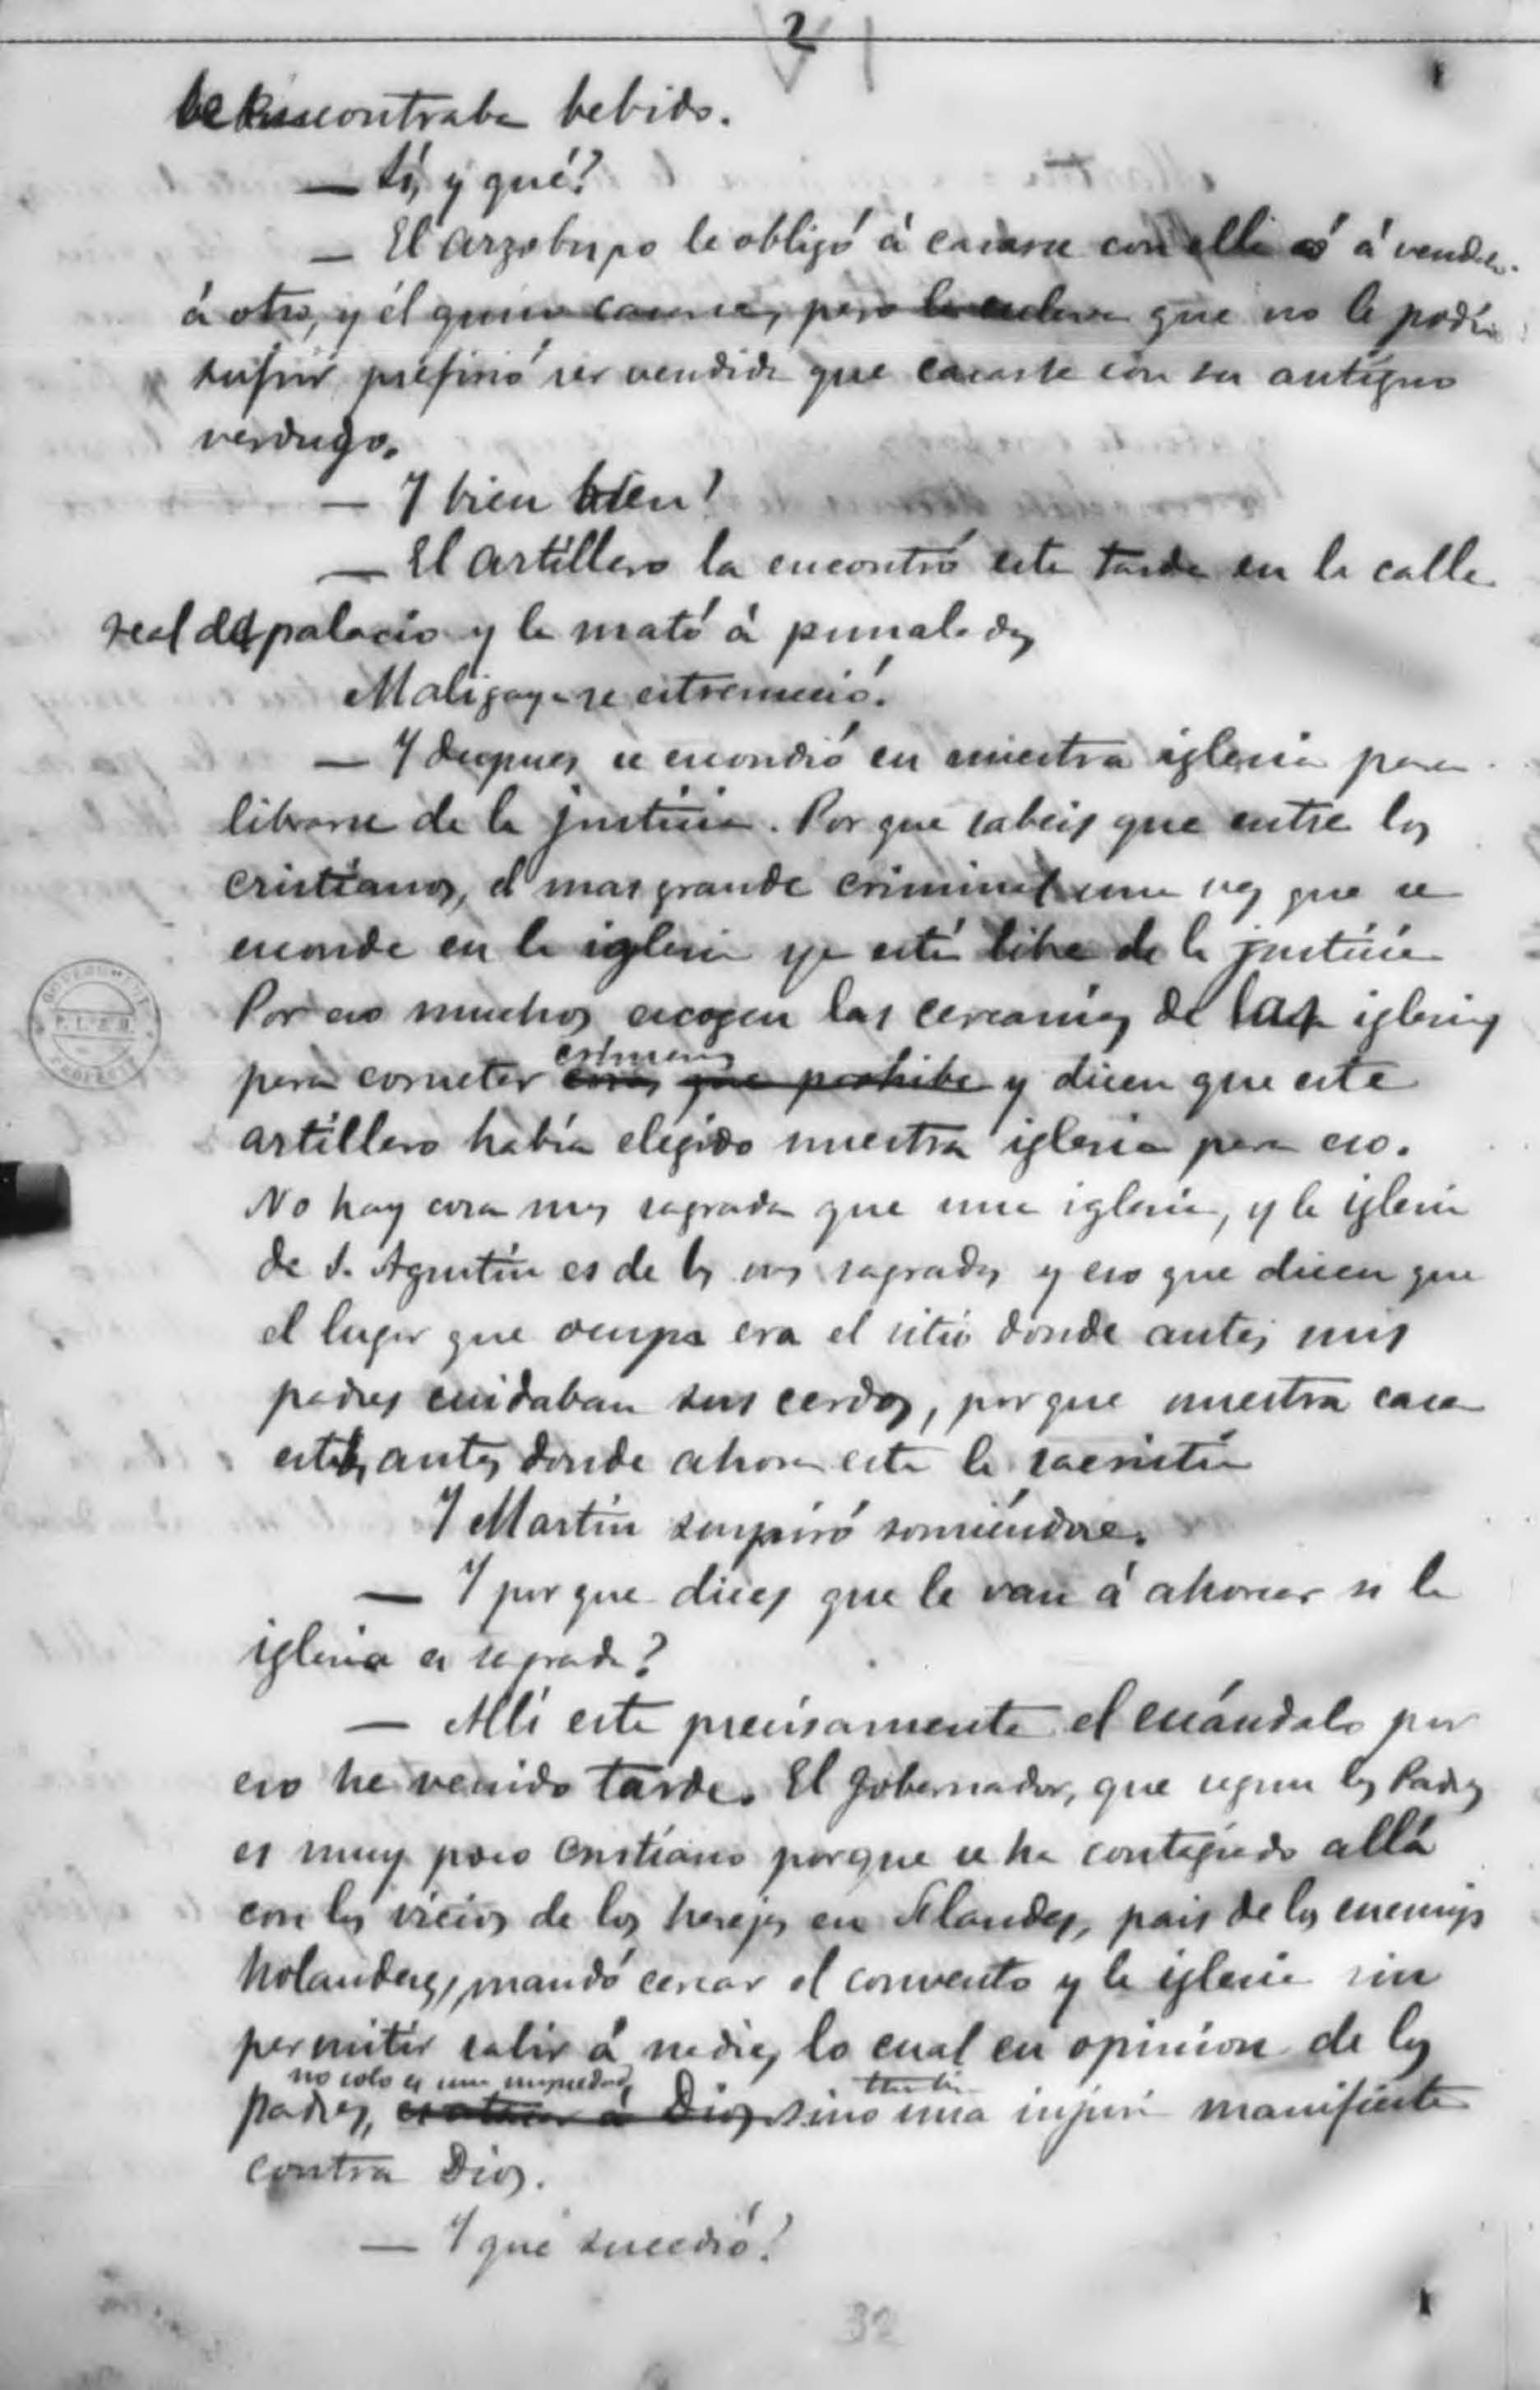 2
se encontraba bebido.
— Sí, y qué?
— El Arzobispo le obligó á casarse con ella ó á venderla
á otro, y él quiso casarse, pero la esclava que no le podía
sufrir, prefirió ser vendida que casarse con su antiguo
verdugo.
— Y bien bien?
— El artillero la encontró esta tarde en la calle
real del palacio y la mató á puñaladas
Maligaya se estremeció.
— Y despues se escondió en nuestra iglesia para
librarse de la justicia. Por que sabeis que entre los
cristianos, el mas grande criminal una vez que se
esconde en la iglesia ya está libre de la justicia
Por eso muchos escogen las cercanías de las iglesias
crímenes
para cometer cosas que prohibe y dicen que este
artillero había elegido nuestra iglesia para eso.
No hay cosa mas sagrada que una iglesia, y la iglesia
de S. Agustín es de las mas sagradas y eso que dicen que
el lugar que ocupa era el sitio donde antes mis
padres cuidaban sus cerdos, porque nuestra casa
estaba antes donde ahora esta la sacristía
Y Martín suspiró sonriéndose.
— Y por que dices que le van á ahorcar si la
iglesia es sagrada?
— Allí esta precisamente el escándalo por
eso he venido tarde. El Gobernador, que segun los Padres
es muy poco cristiano porque se ha contagiado allá
con los vicios de los herejes en Flandes, pais de los enemigos
holandeses, mandó cercar el convento y la iglesia sin
permitir salir á nadie, lo cual en opinion de los
no solo es una impiedad, tambien
padres, es atacar á Dios sino una injuria manifiesta
contra Dios.
— Y qué sucedió?
32